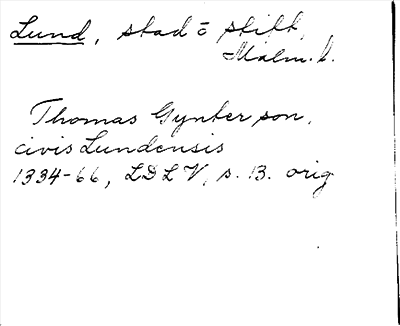 Lund, stad o stift,
Malm. l.
Thomas Gynter son,
civis Lundensis
1334-66, LDLV, s. 13. orig